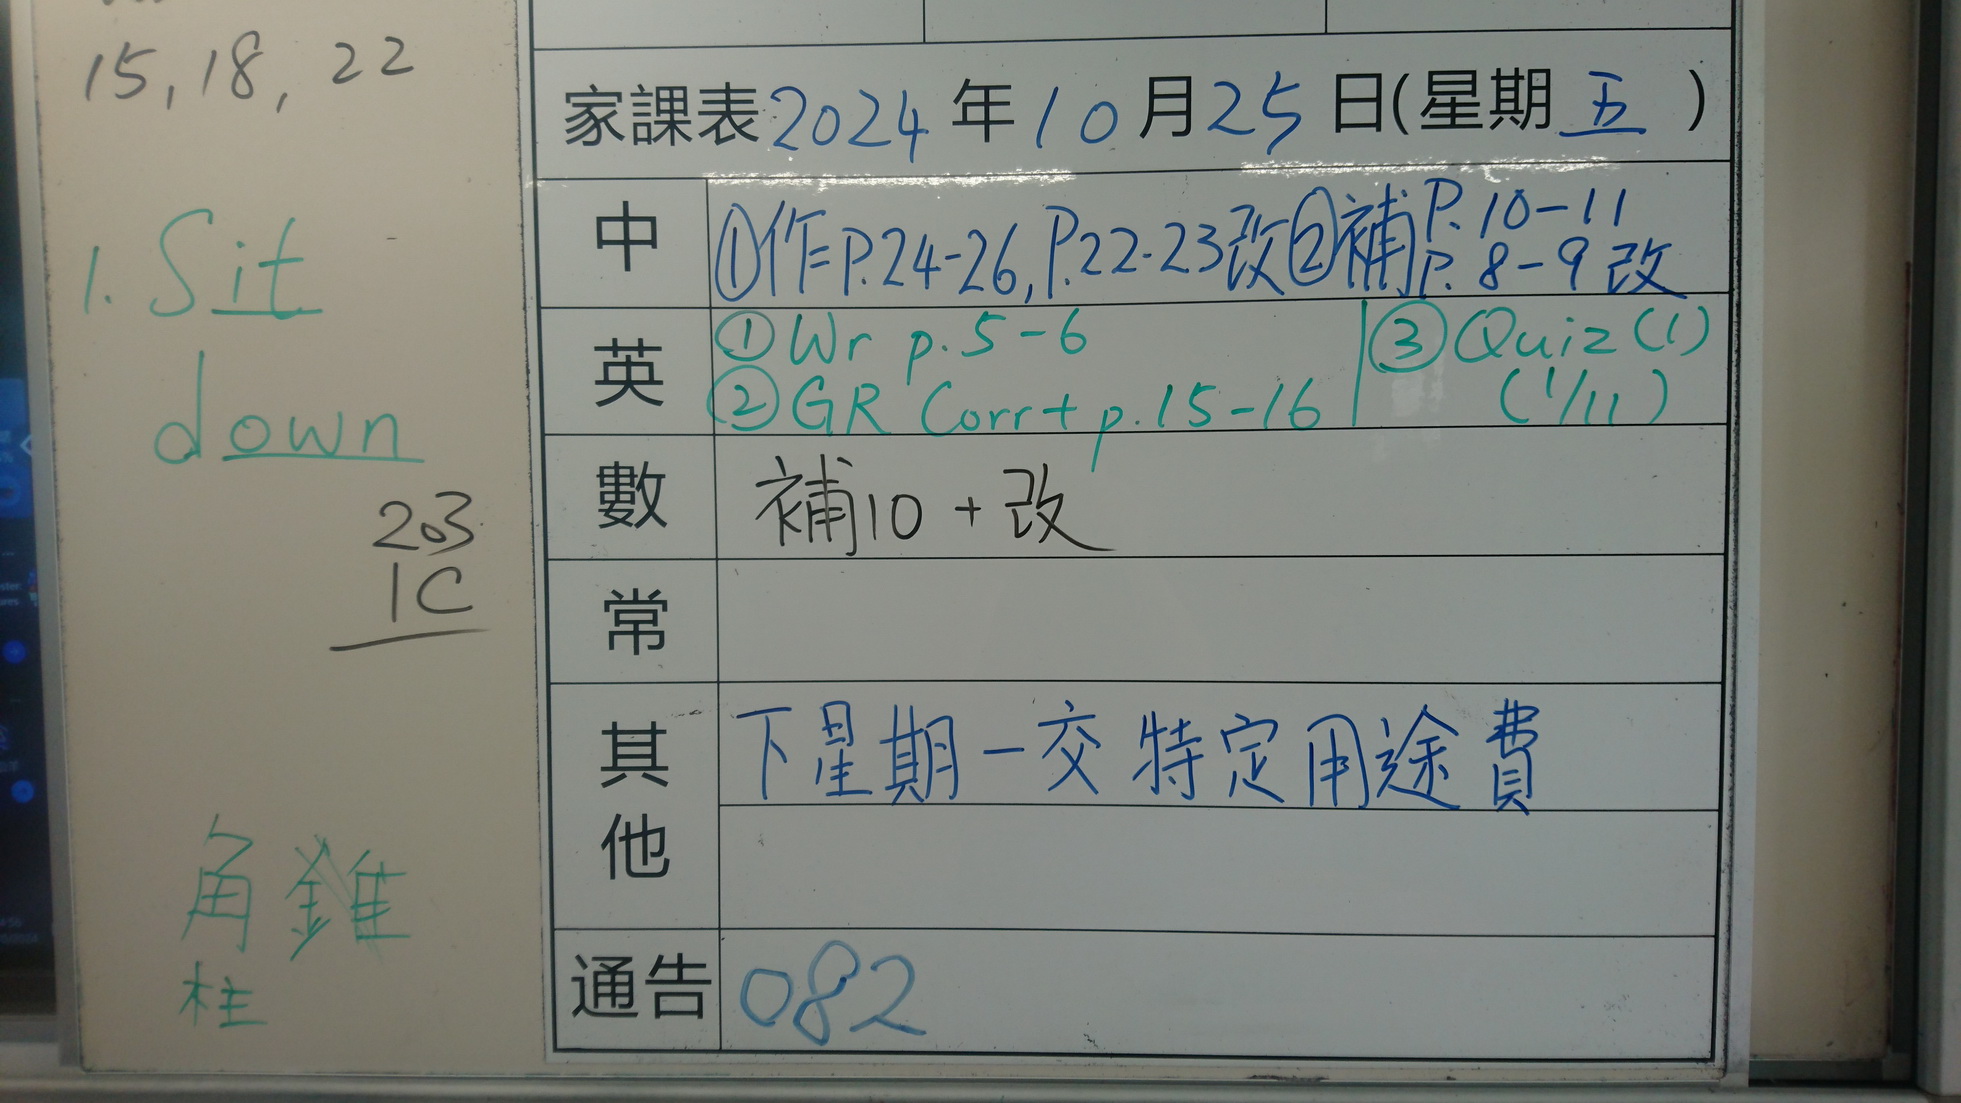 15, 18, 22
1. Sit
down
203
1C
角錐
柱
家課表2024年10月25日(星期五)
中
①作P.24-26, P.22-23改②補P.10-11
P.8-9改
英
①Wr p.5-6
②GR Corr+ p.15-16
③Quiz(1)
(1/11)
數
補10+改
常
其他
下星期一交特定用途費
通告
082